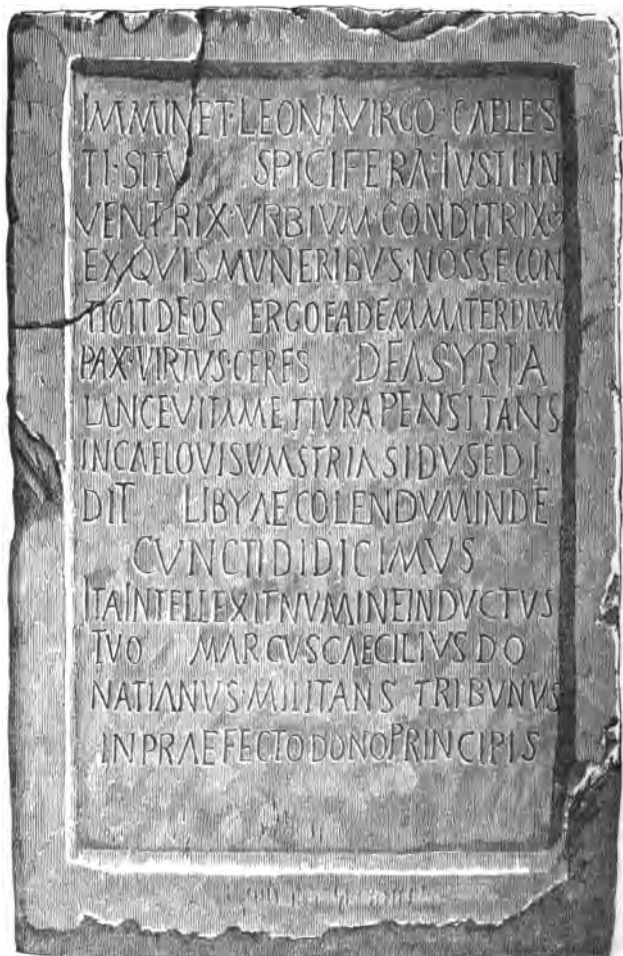 IMMINET·LEONI VIRGO·CAELES
TI·SITV SPICIFERA·IVSTI·IN
VENTRIX·VRBIVM·CONDITRIX
EX QVIS MVNERIBVS·NOSSE CON
TIGIT DEOS ERGO EADEM MATER DIVVM
PAX·VIRTVS·CERES DEA SYRIA
LANCE VITAM ET IVRA PENSITANS
IN CAELO VISVM SYRIA SIDVS EDI
DIT LIBYAE COLENDVM INDE
CVNCTI DIDICIMVS
ITA INTELLEXIT NVMINE INDVCTVS
TVO MARCVS CAECILIVS DO
NATIANVS·MILITANS TRIBVNVS
IN PRAEFECTO DONO PRINCIPIS